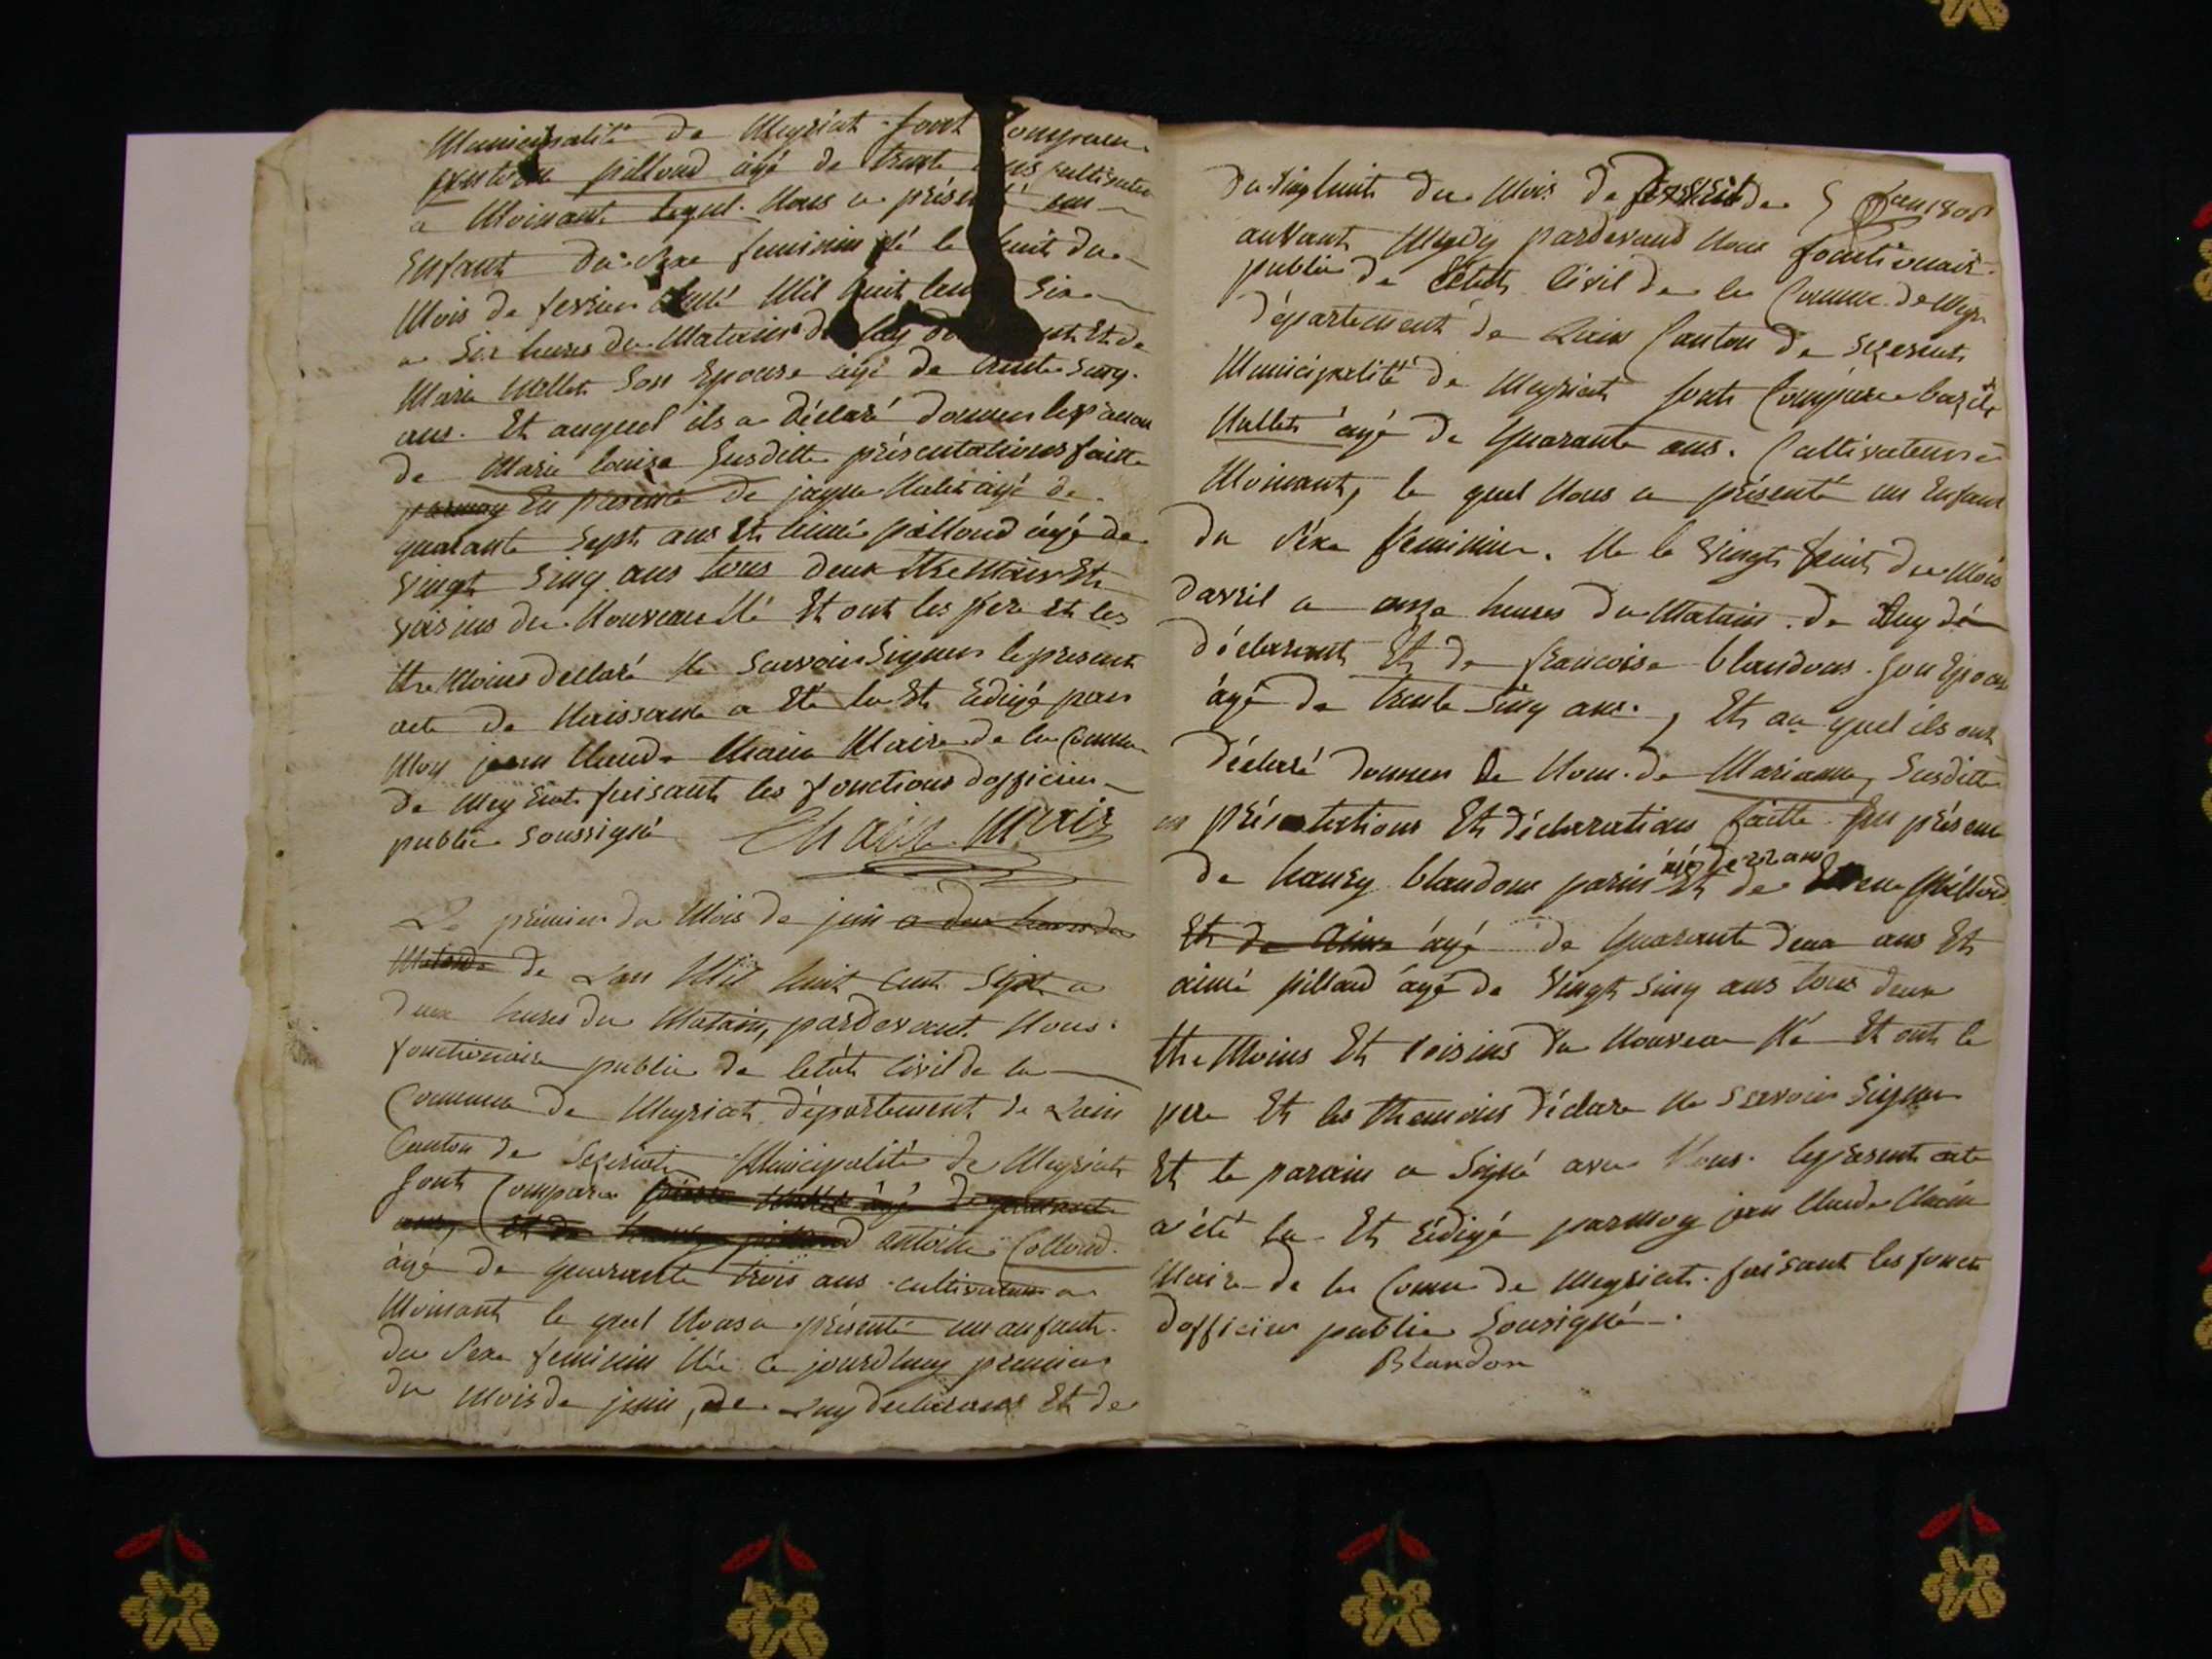 Municipalité de Meyriat sont
pilloud agé de trente cultivateur
a Moinant lequel Nous a un
Enfant du sexe feminin né le huit du
Mois de fevrier Mil huit Six
a Six heures du Matain Et de
Marie Mallet Son Epouse agé de trente Sinq
ans. Et auquel ils a déclaré donner
de Marie louise Susditte présentations faitte
En présence de jaque Malet agé de
quarante Sept ans Et aimé pilloud agé de
Vingt Sinq ans tous deux themoins Et
voisins du Nouveau Né Et ont les pere Et les
themoins declaré Ne Savoir Signer le present
acte de Naissance a Eté lu Et Rédigé par
Moy jean Claude Chaine Maire de la Comune
de Meyriat faisant les fonctions dofficier
public Soussigné Chaine Maire
Le premier du Mois de juin a deux heures du
Matain de Lan Mil huit Cent Sept a
deux heures du Matain, pardevant Nous
fonctionaire public de létat Civil de la
Commune de Meyriat département de Lain
Canton de Seyseriat Municipalité de Meyriat
Sont Comparu
antoine Colloud
agé de quarante trois ans cultivateur a
Moinant le quel Nous a présenté un anfant
du Sexe feminin Née Ce jourdhuy premier
du Mois de juin, de Luy declarant Et de
Du Vingthuit du Mois de de
avant Meydy pardevant Nous fonctionair
public de létat Civil de la Comune de Meyr
département de Lain Canton de Seyseriat
Municipalité de Meyriat sont Comparu bazile
Mallet agé de quarante ans. Cultivateur a
Moinant, le quel Nous a présenté un Enfant
du Séxe féminin. Né le Vingt huit du Mois
davril a onze heures du Matain. de Luy dé
déclarant Et de francoise blandon. Son Epouse
agé de trente Sinq ans., Et au quel ils ont
déclaré donner le Nom. de Marianne, Susditte
présentations Et déclarations faitte En présence
de hanry blandon parin agé de 22 ans Et de pilloud
Et de Aimé agé de quarante deux ans Et
aimé pilloud agé de Vingt Sinq ans tous deux
the Moins Et voisins du Nouveau Né Et ont le
pere Et les themoins déclare Ne Savoir Signer
Et le parain a Signé avec Nous. le présent acte
a été lu Et Rédigé par moy jean Claude Chaine
Maire de la Comune de Meyriat. faisant les fonct
dofficier public Sousigné.
Blandon